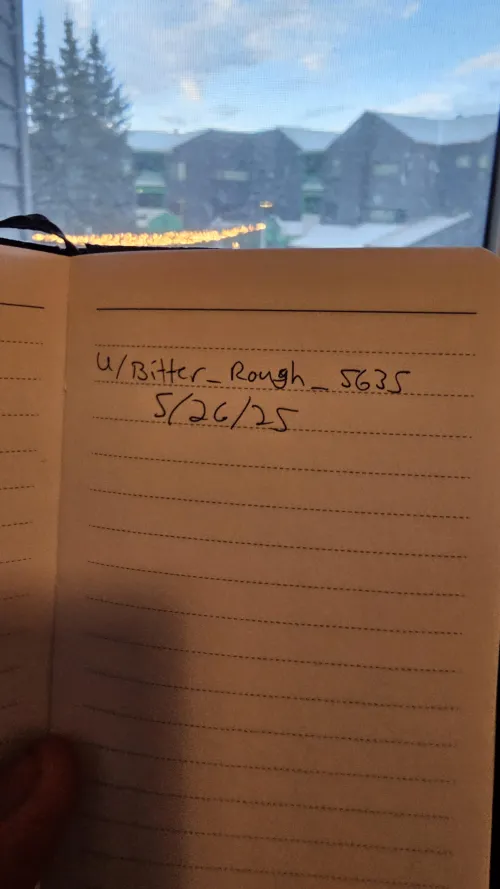 u/Bitter_Rough_5635
5/26/25